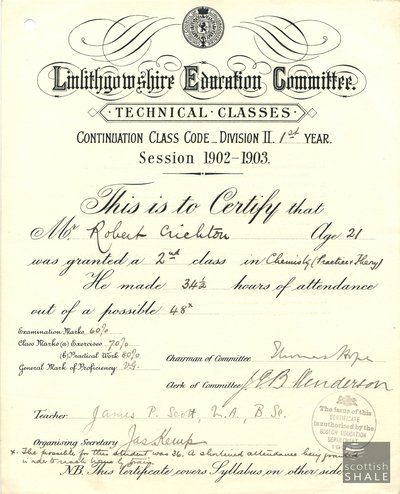 Linlithgowshire Education Committee.
TECHNICAL CLASSES
CONTINUATION CLASS CODE - DIVISION II. 1st YEAR.
Session 1902-1903.
This is to Certify that
Mr Robert Crichton Age 21
was granted a 2nd class in Chemistry (Practice & Theory)
He made 34½ hours of attendance
out of a possible 48x
Examination Marks 60%
Class Marks (a) Exercises 70%
(b) Practical Work 80%
General Mark of Proficiency V.G.
Chairman of Committee Thomas Hope
Clerk of Committee J.G.B. Henderson
Teacher James P. Scott, M.A., B.Sc.
Organising Secretary Jas Kemp
The issue of this
CERTIFICATE
is authorised by the
SCOTCH EDUCATION
DEPARTMENT
x. The possible for this student was 36. A shortened attendance being permitted
in order to reach home by train.
NB. This Certificate covers Syllabus on other side
MUSEUM OF THE
SCOTTISH
SHALE